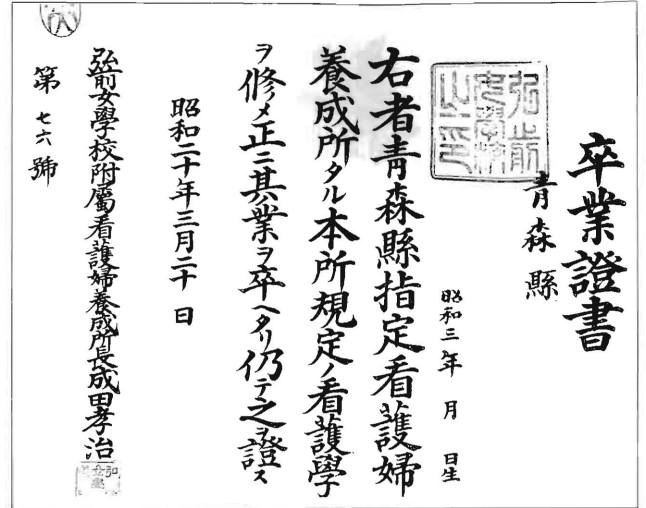 卒業證書
青森縣
昭和三年 月 日生
弘前
女學校
之印
右者青森縣指定看護婦
養成所タル本所規定ノ看護學
ヲ修メ正ニ其業ヲ卒ヘタリ仍テ之ヲ證ス
昭和二十年三月二十日
弘前女學校附屬看護婦養成所長成田孝治
第七六號